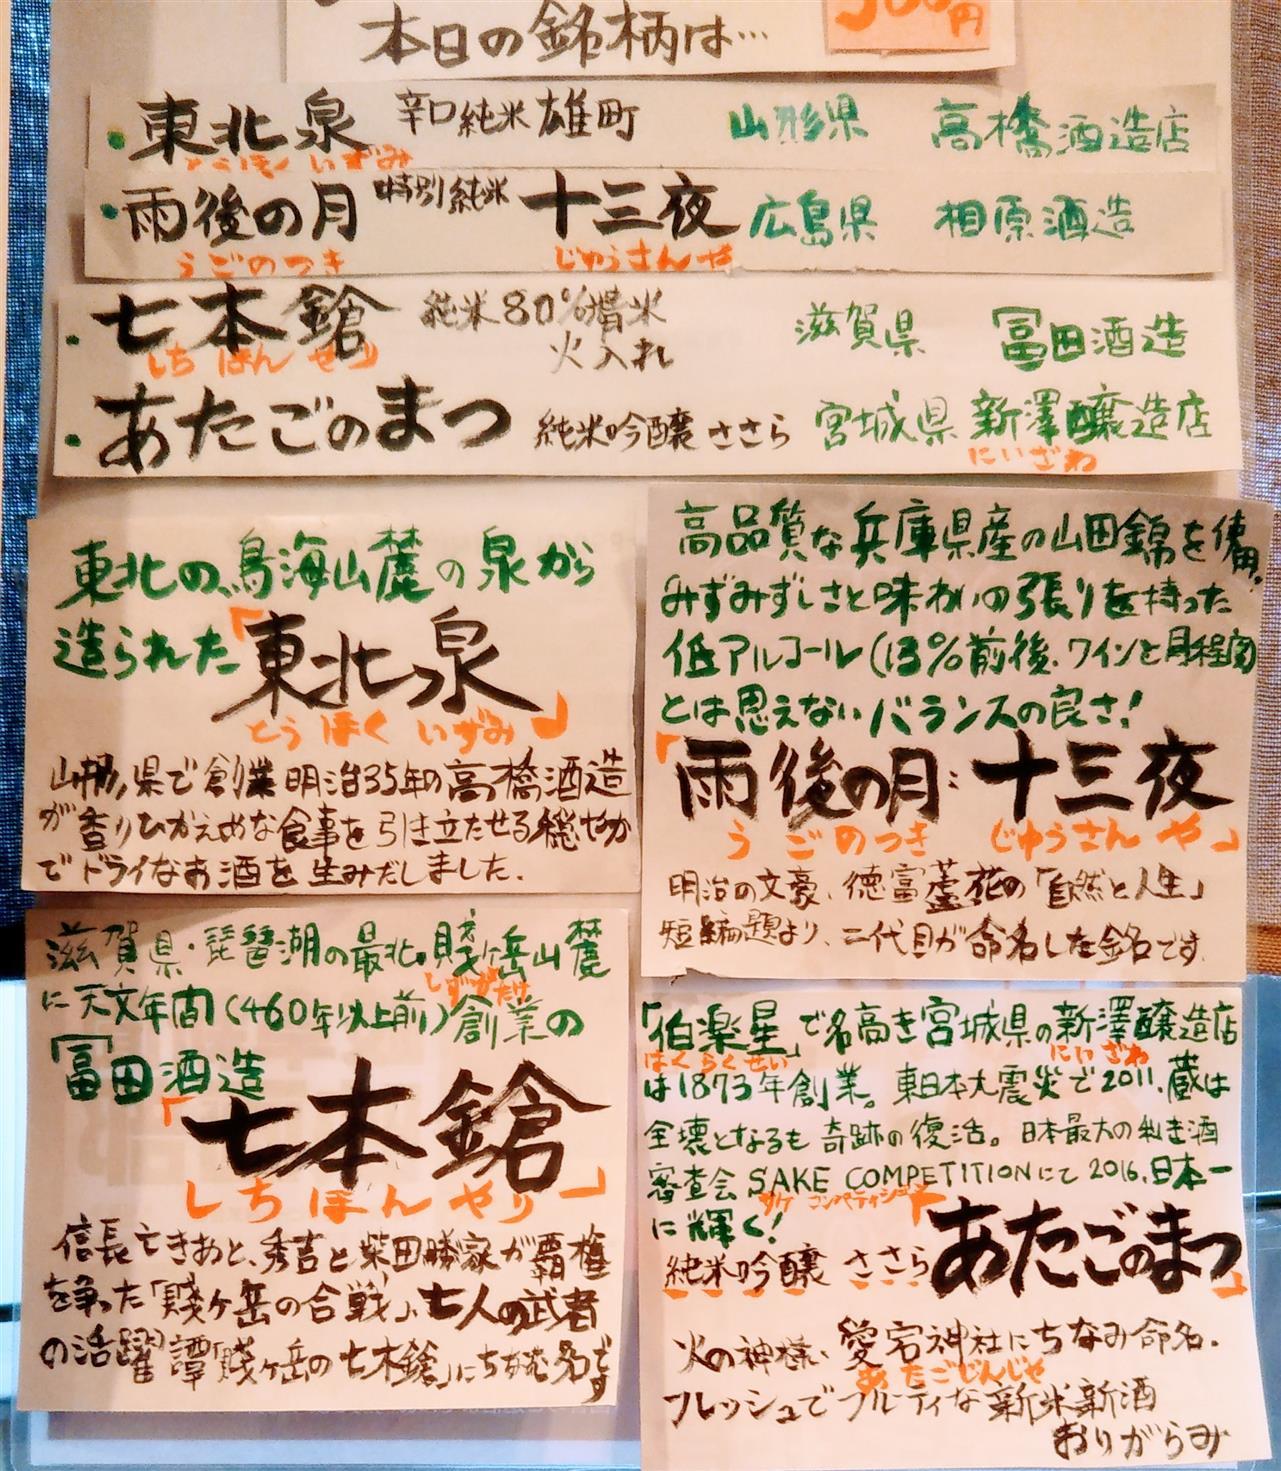 本日の銘柄は…
円
・東北泉 辛口純米 雄町 山形県 高橋酒造店
とうほく いずみ
・雨後の月 特別純米 十三夜 広島県 相原酒造
うごのつき じゅうさんや
・七本鎗 純米80%精米 滋賀県 冨田酒造
火入れ
しちほんやり
・あたごのまつ 純米吟醸 ささら 宮城県 新澤醸造店
にいざわ
東北の、鳥海山麓の泉から
造られた「東北泉」
とうほく いずみ
山形県で創業明治35年の高橋酒造
が香りひかえめな食事を引き立たせる穏やか
でドライなお酒を生みだしました.
高品質な兵庫県産の山田錦を使用。
みずみずしさと味わいの張りを持った
低アルコール(13%前後.ワインと同程度)
とは思えないバランスの良さ!
「雨後の月:十三夜」
うごのつき じゅうさんや
明治の文豪、徳富蘆花の「自然と人生」
短編題より、二代目が命名した銘です
滋賀県・琵琶湖の最北.賤ヶ岳山麓
しずがたけ
に天文年間(460年以上前)創業の
冨田酒造
「七本鎗」
しちほんやり
信長亡きあと、秀吉と柴田勝家が覇権
を争った「賤ヶ岳の合戦」、七人の武者
の活躍譚「賤ヶ岳の七本鎗」にちなむ名です
「伯楽星」で名高き宮城県の新澤醸造店
はくらくせい にいざわ
は1873年創業。東日本大震災で2011.蔵は
全壊となるも奇跡の復活。日本最大の利き酒
審査会 SAKE COMPETITIONにて2016.日本一
サケ コンペティション
に輝く!
純米吟醸 ささら「あたごのまつ」
火の神様、愛宕神社にちなみ命名.
あたごじんじゃ
フレッシュでフルーティな新米新酒
おりがらみ